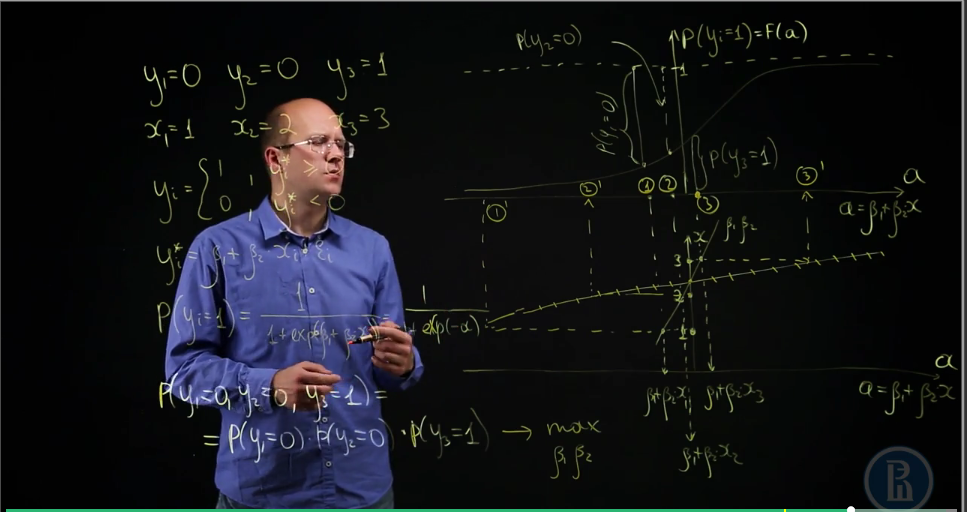 y₁=0 y₂=0 y₃=1
x₁=1 x₂=2 x₃=3
yᵢ={ 1, yᵢ* ≥
0, yᵢ* < 0
yᵢ* = β₁+ β₂ xᵢ εᵢ
P(yᵢ=1) = 1/(1+exp(β₁+β₂x)) = 1/(+ exp(-a))
P(y₁=0, y₂=0, y₃=1) =
= P(y₁=0) · P(y₂=0) · P(y₃=1) → max
β₁ β₂
P(y₂=0)
P(yᵢ=1)=F(a)
1
P(y₁=0)
P(y₃=1)
①' ②' ① ② ③ ③'
a
a=β₁+β₂x
x
β₁ β₂
3
2
1
a
a=β₁+β₂x
β₁+β₂x₁
β₁+β₂x₃
β₁+β₂x₂